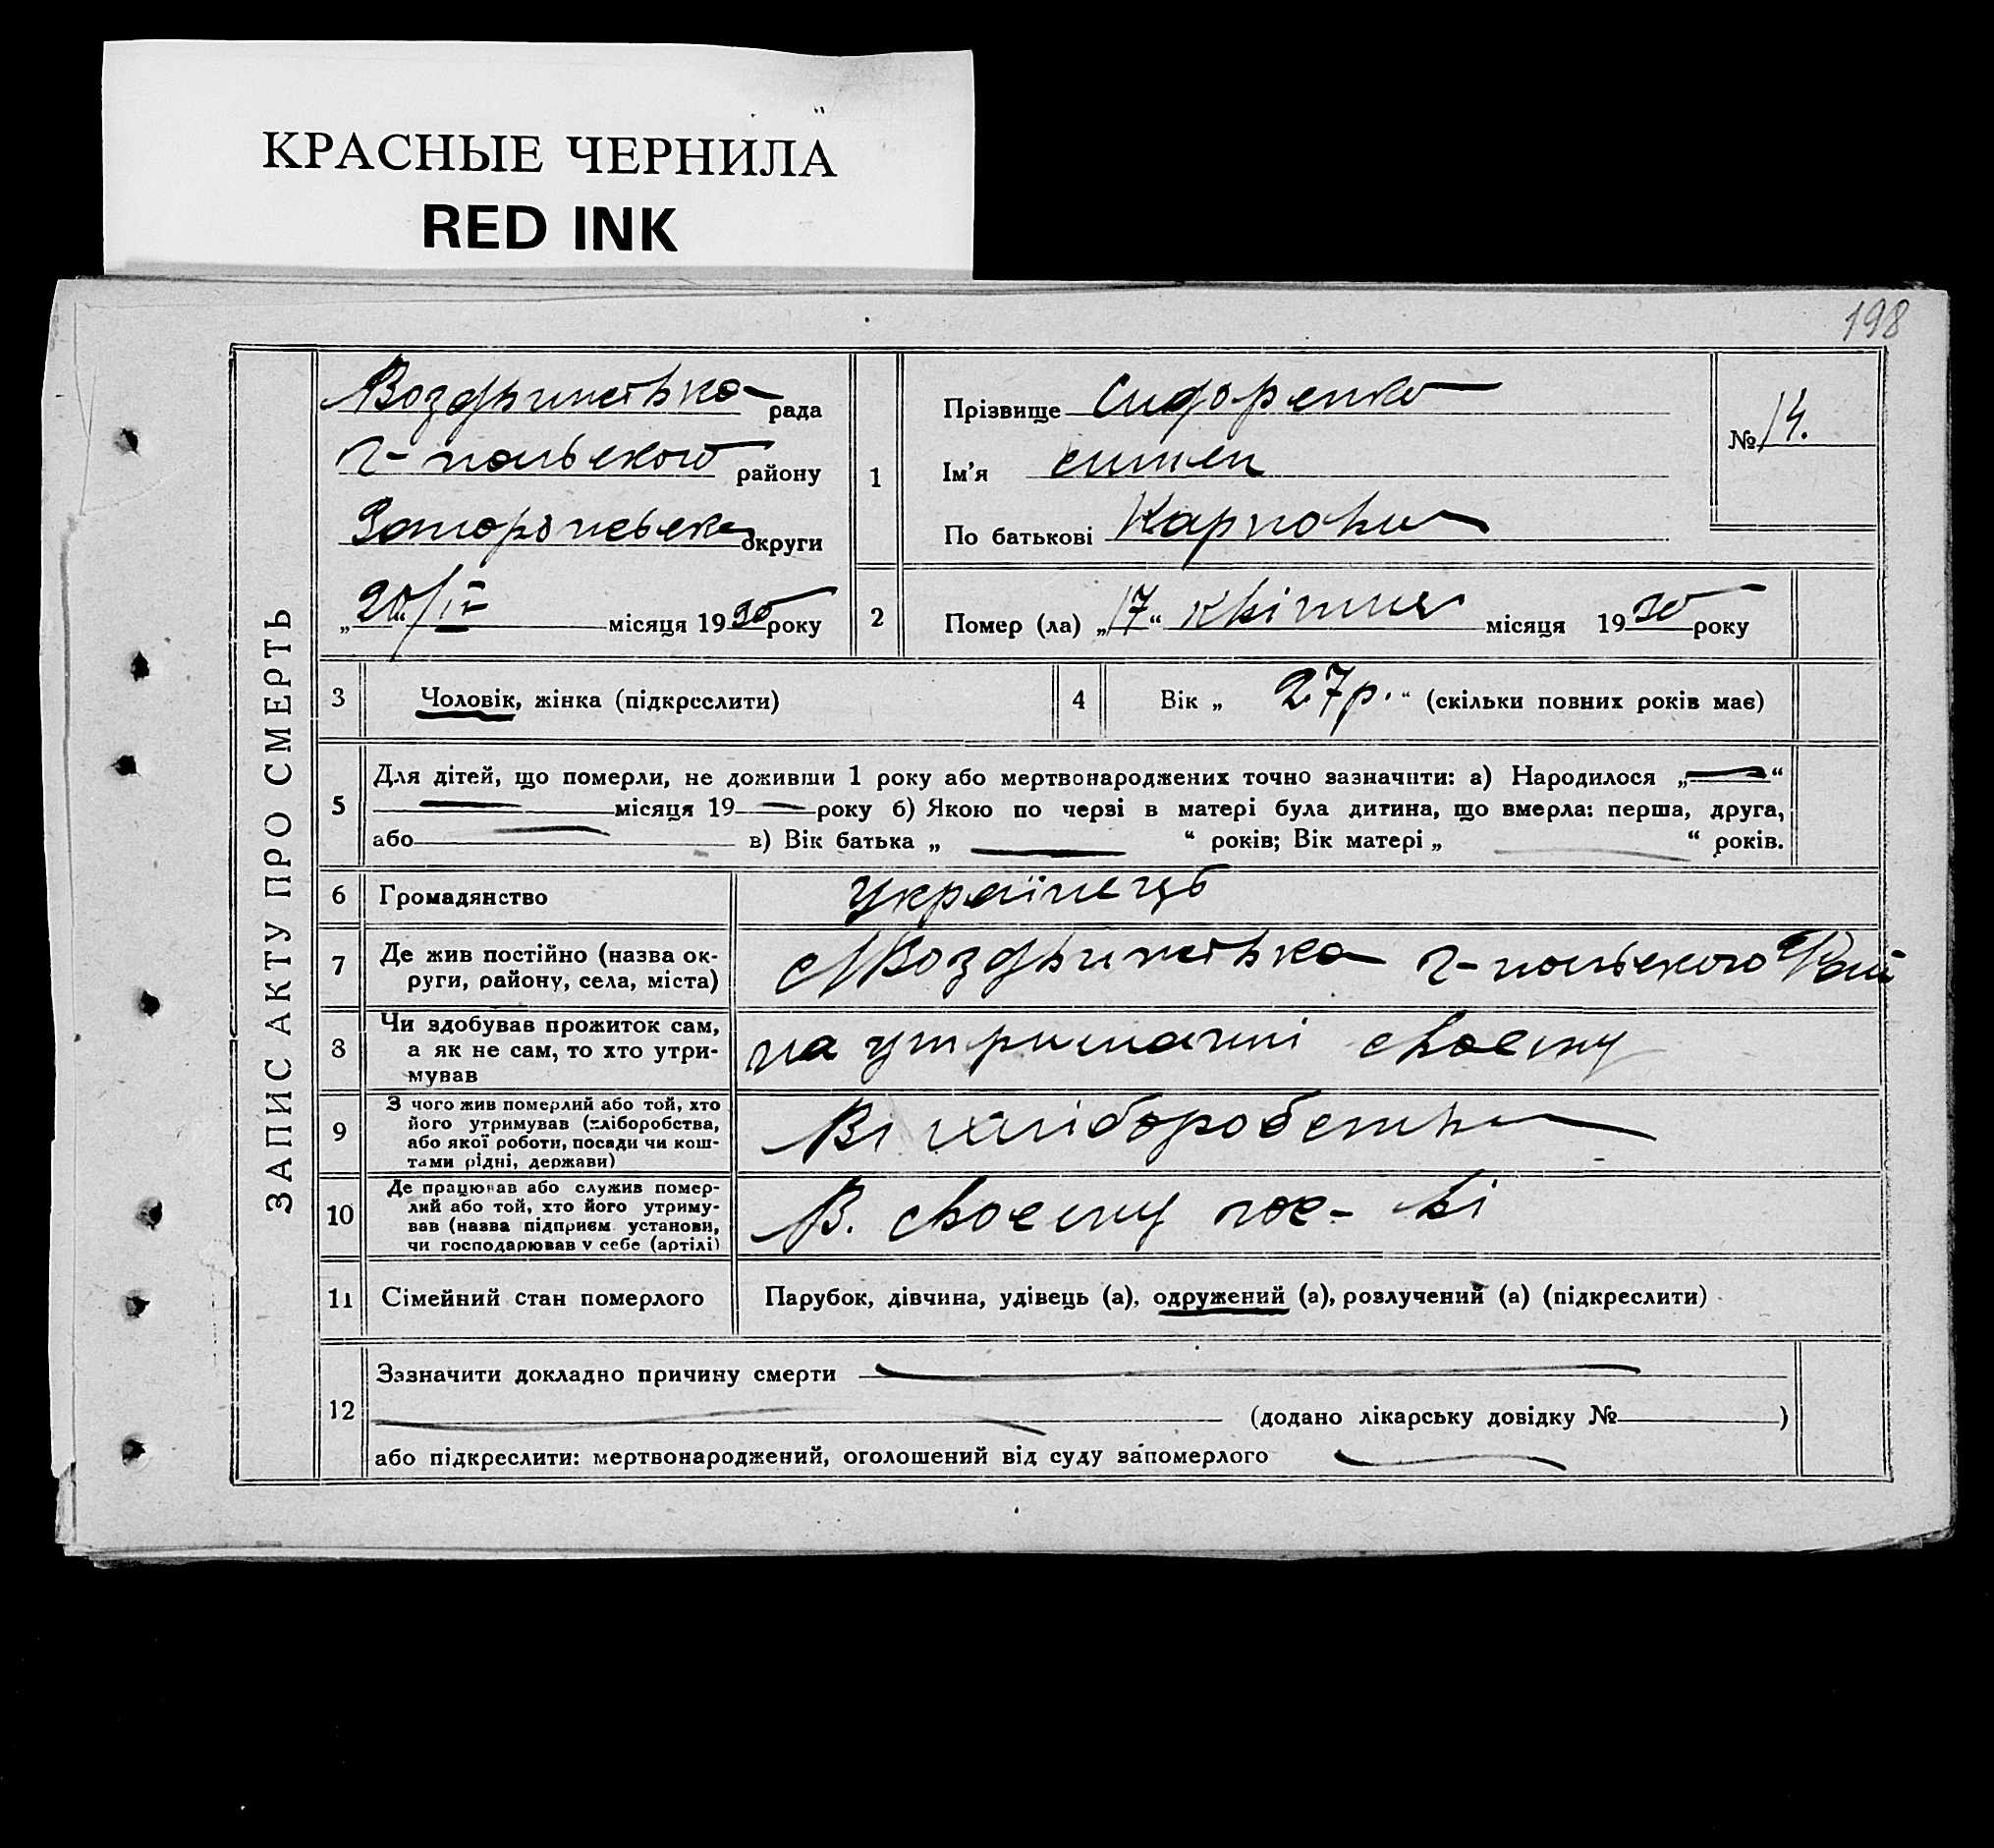 КРАСНЫЕ ЧЕРНИЛА
RED INK
198
ЗАПИС АКТУ ПРО СМЕРТЬ
Воздвижівка рада
Г-польского району
Запоріжська округи
„20/IV місяця 1930 року
1
Прізвище Сидоренко
Ім'я Симен
По батькові Карпови
№ 14.
2
Помер (ла) „17“ квітня місяця 1930 року
3 Чоловік, жінка (підкреслити)
4 Вік „ 27р. “ (скільки повних років має)
5 Для дітей, що померли, не доживши 1 року або мертвонароджених точно зазначити: а) Народилося „ “
місяця 19 року б) Якою по черзі в матері була дитина, що вмерла: перша, друга,
або в) Вік батька „ “ років; Вік матері „ “ років.
6 Громадянство Українець
7 Де жив постійно (назва ок-
руги, району, села, міста)
с Воздвижівка Г-польского Рай
8 Чи здобував прожиток сам,
а як не сам, то хто утри-
мував
на утриманні своему
9 З чого жив померлий або той, хто
його утримував (хліборобства,
або якої роботи, посади чи кош-
тами рідні, держави)
Ві хліборобства
10 Де працював або служив помер-
лий або той, хто його утриму-
вав (назва підприєм. установи,
чи господарював у себе (артілі)
В. своему гос-ві
11 Сімейний стан померлого Парубок, дівчина, удівець (а), одружений (а), розлучений (а) (підкреслити)
12 Зазначити докладно причину смерти
(додано лікарську довідку № )
або підкреслити: мертвонароджений, оголошений від суду запомерлого